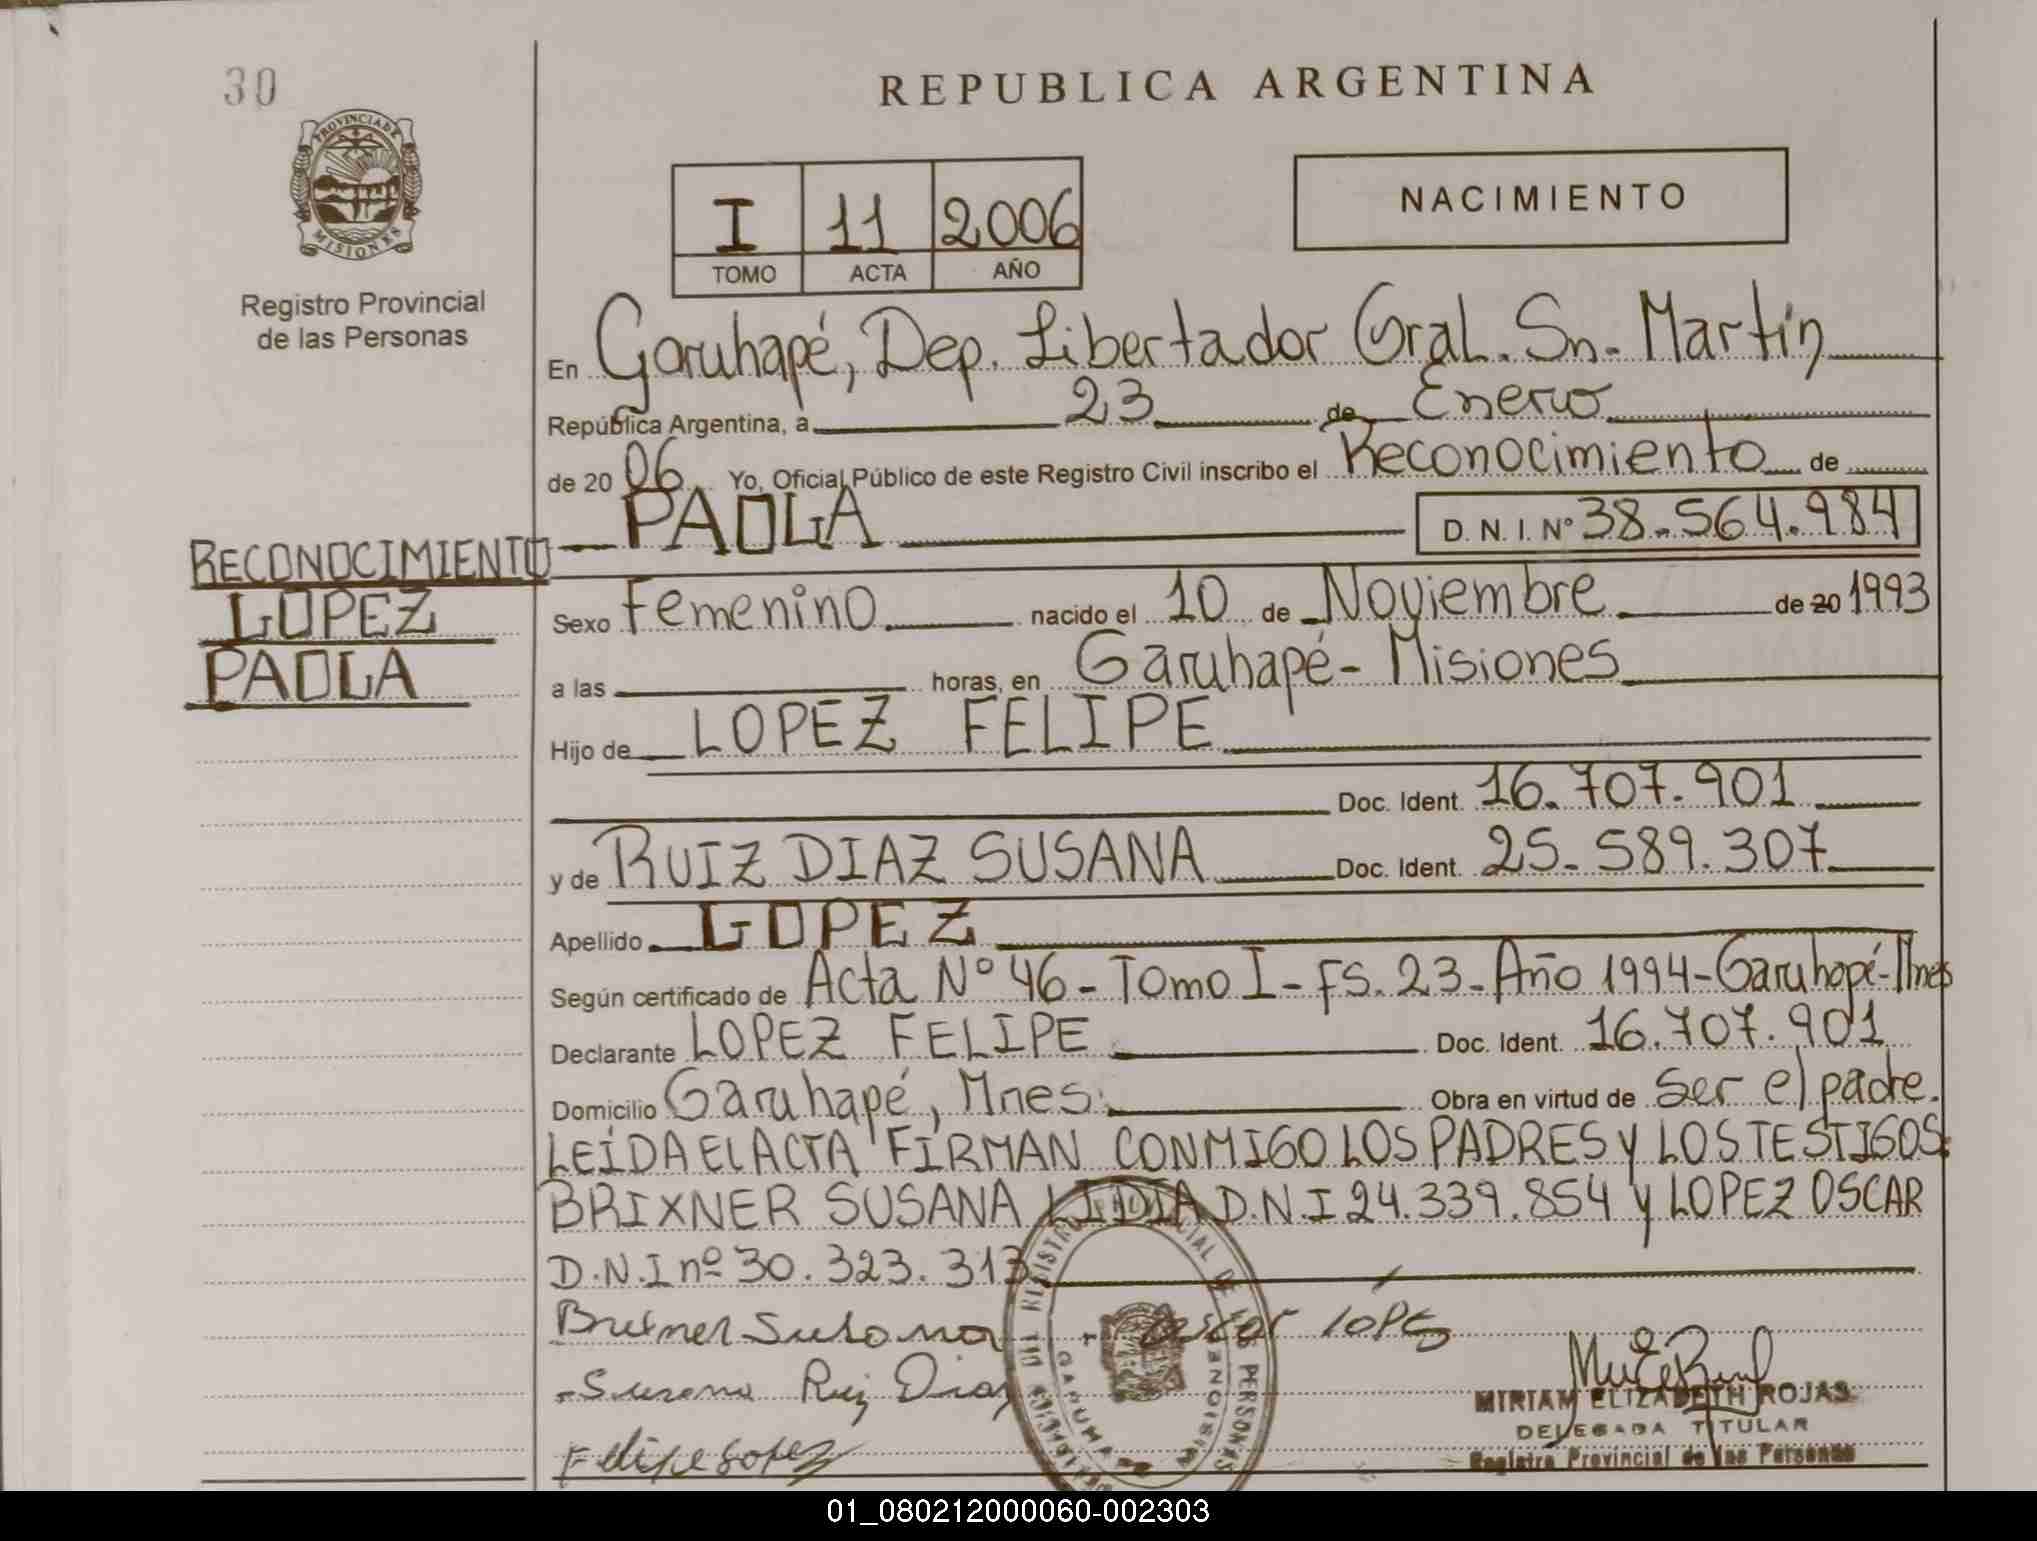 30
REPUBLICA ARGENTINA
PROVINCIA DE
MISIONES
Registro Provincial
de las Personas
I 11 2006
TOMO ACTA AÑO
NACIMIENTO
En Garuhapé, Dep. Libertador Gral. Sn. Martín
República Argentina, a 23 de Enero
de 20 06 Yo, Oficial Público de este Registro Civil inscribo el Reconocimiento de
PAOLA D. N. I. Nº 38.564.984
RECONOCIMIENTO
LOPEZ
PAOLA
Sexo Femenino nacido el 10 de Noviembre de 20 1993
a las horas, en Garuhapé - Misiones
Hijo de LOPEZ FELIPE
Doc. Ident. 16.707.901
y de RUIZ DIAZ SUSANA Doc. Ident. 25.589.307
Apellido LOPEZ
Según certificado de Acta Nº 46 - Tomo I - FS. 23 - Año 1994 - Garuhapé - Mnes
Declarante LOPEZ FELIPE Doc. Ident. 16.707.901
Domicilio Garuhapé, Mnes. Obra en virtud de Ser el padre.
LEÍDA EL ACTA FIRMAN CONMIGO LOS PADRES Y LOS TESTIGOS:
BRIXNER SUSANA LIDIA D.N.I 24.339.854 y LOPEZ OSCAR
D.N.I nº 30.323.313
Brixner Susana oscar lópez
Susana Ruiz Diaz
Felipe Lopez
MIRIAM ELIZABETH ROJAS
DELEGADA TITULAR
Registro Provincial de las Personas
01_080212000060-002303